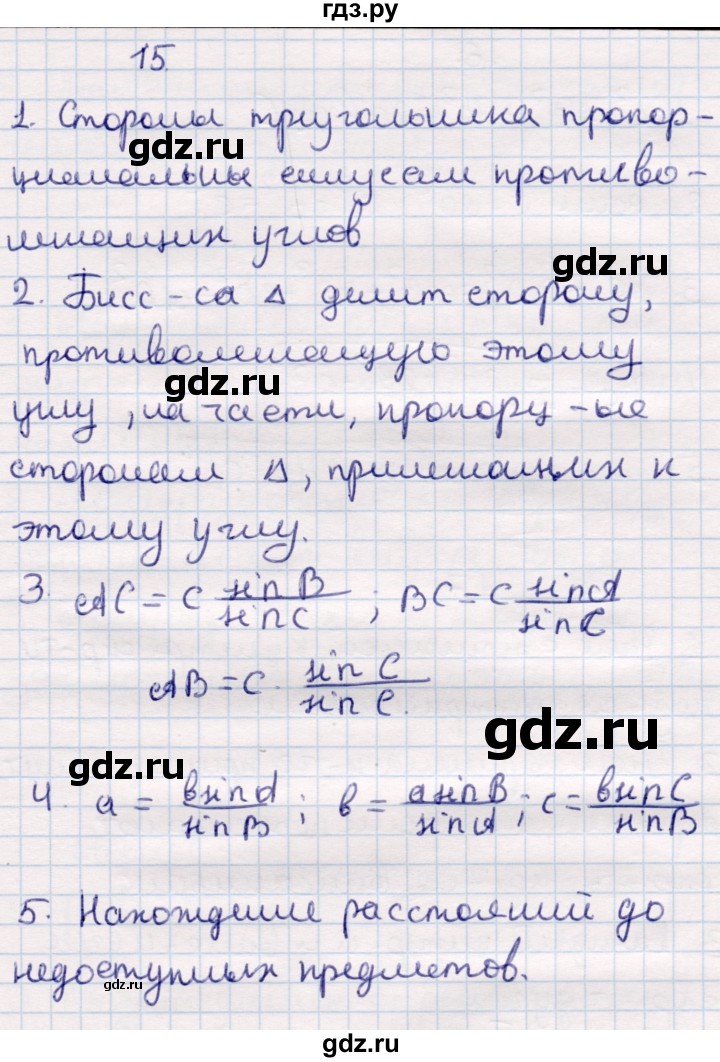 гдз.ру
15.
1. Стороны треугольника пропор-
циональны синусам противо-
лежащих углов
gdz.ru
2. Бисс-са Δ делит сторону,
противолежащую этому
gdz.ru
углу, на части, пропорц-ые
сторонам Δ, прилежащих к
этому углу.
3 AC = C sin B / sin C ; BC = C sin A / sin C
AB = C · sin C / sin C.
gdz.ru
gdz.ru
4. a = b sin A / sin B ; b = a sin B / sin A ; c = b sin C / sin B
5. Нахождение расстояний до
недоступных предметов.
gdz.ru
gdz.ru